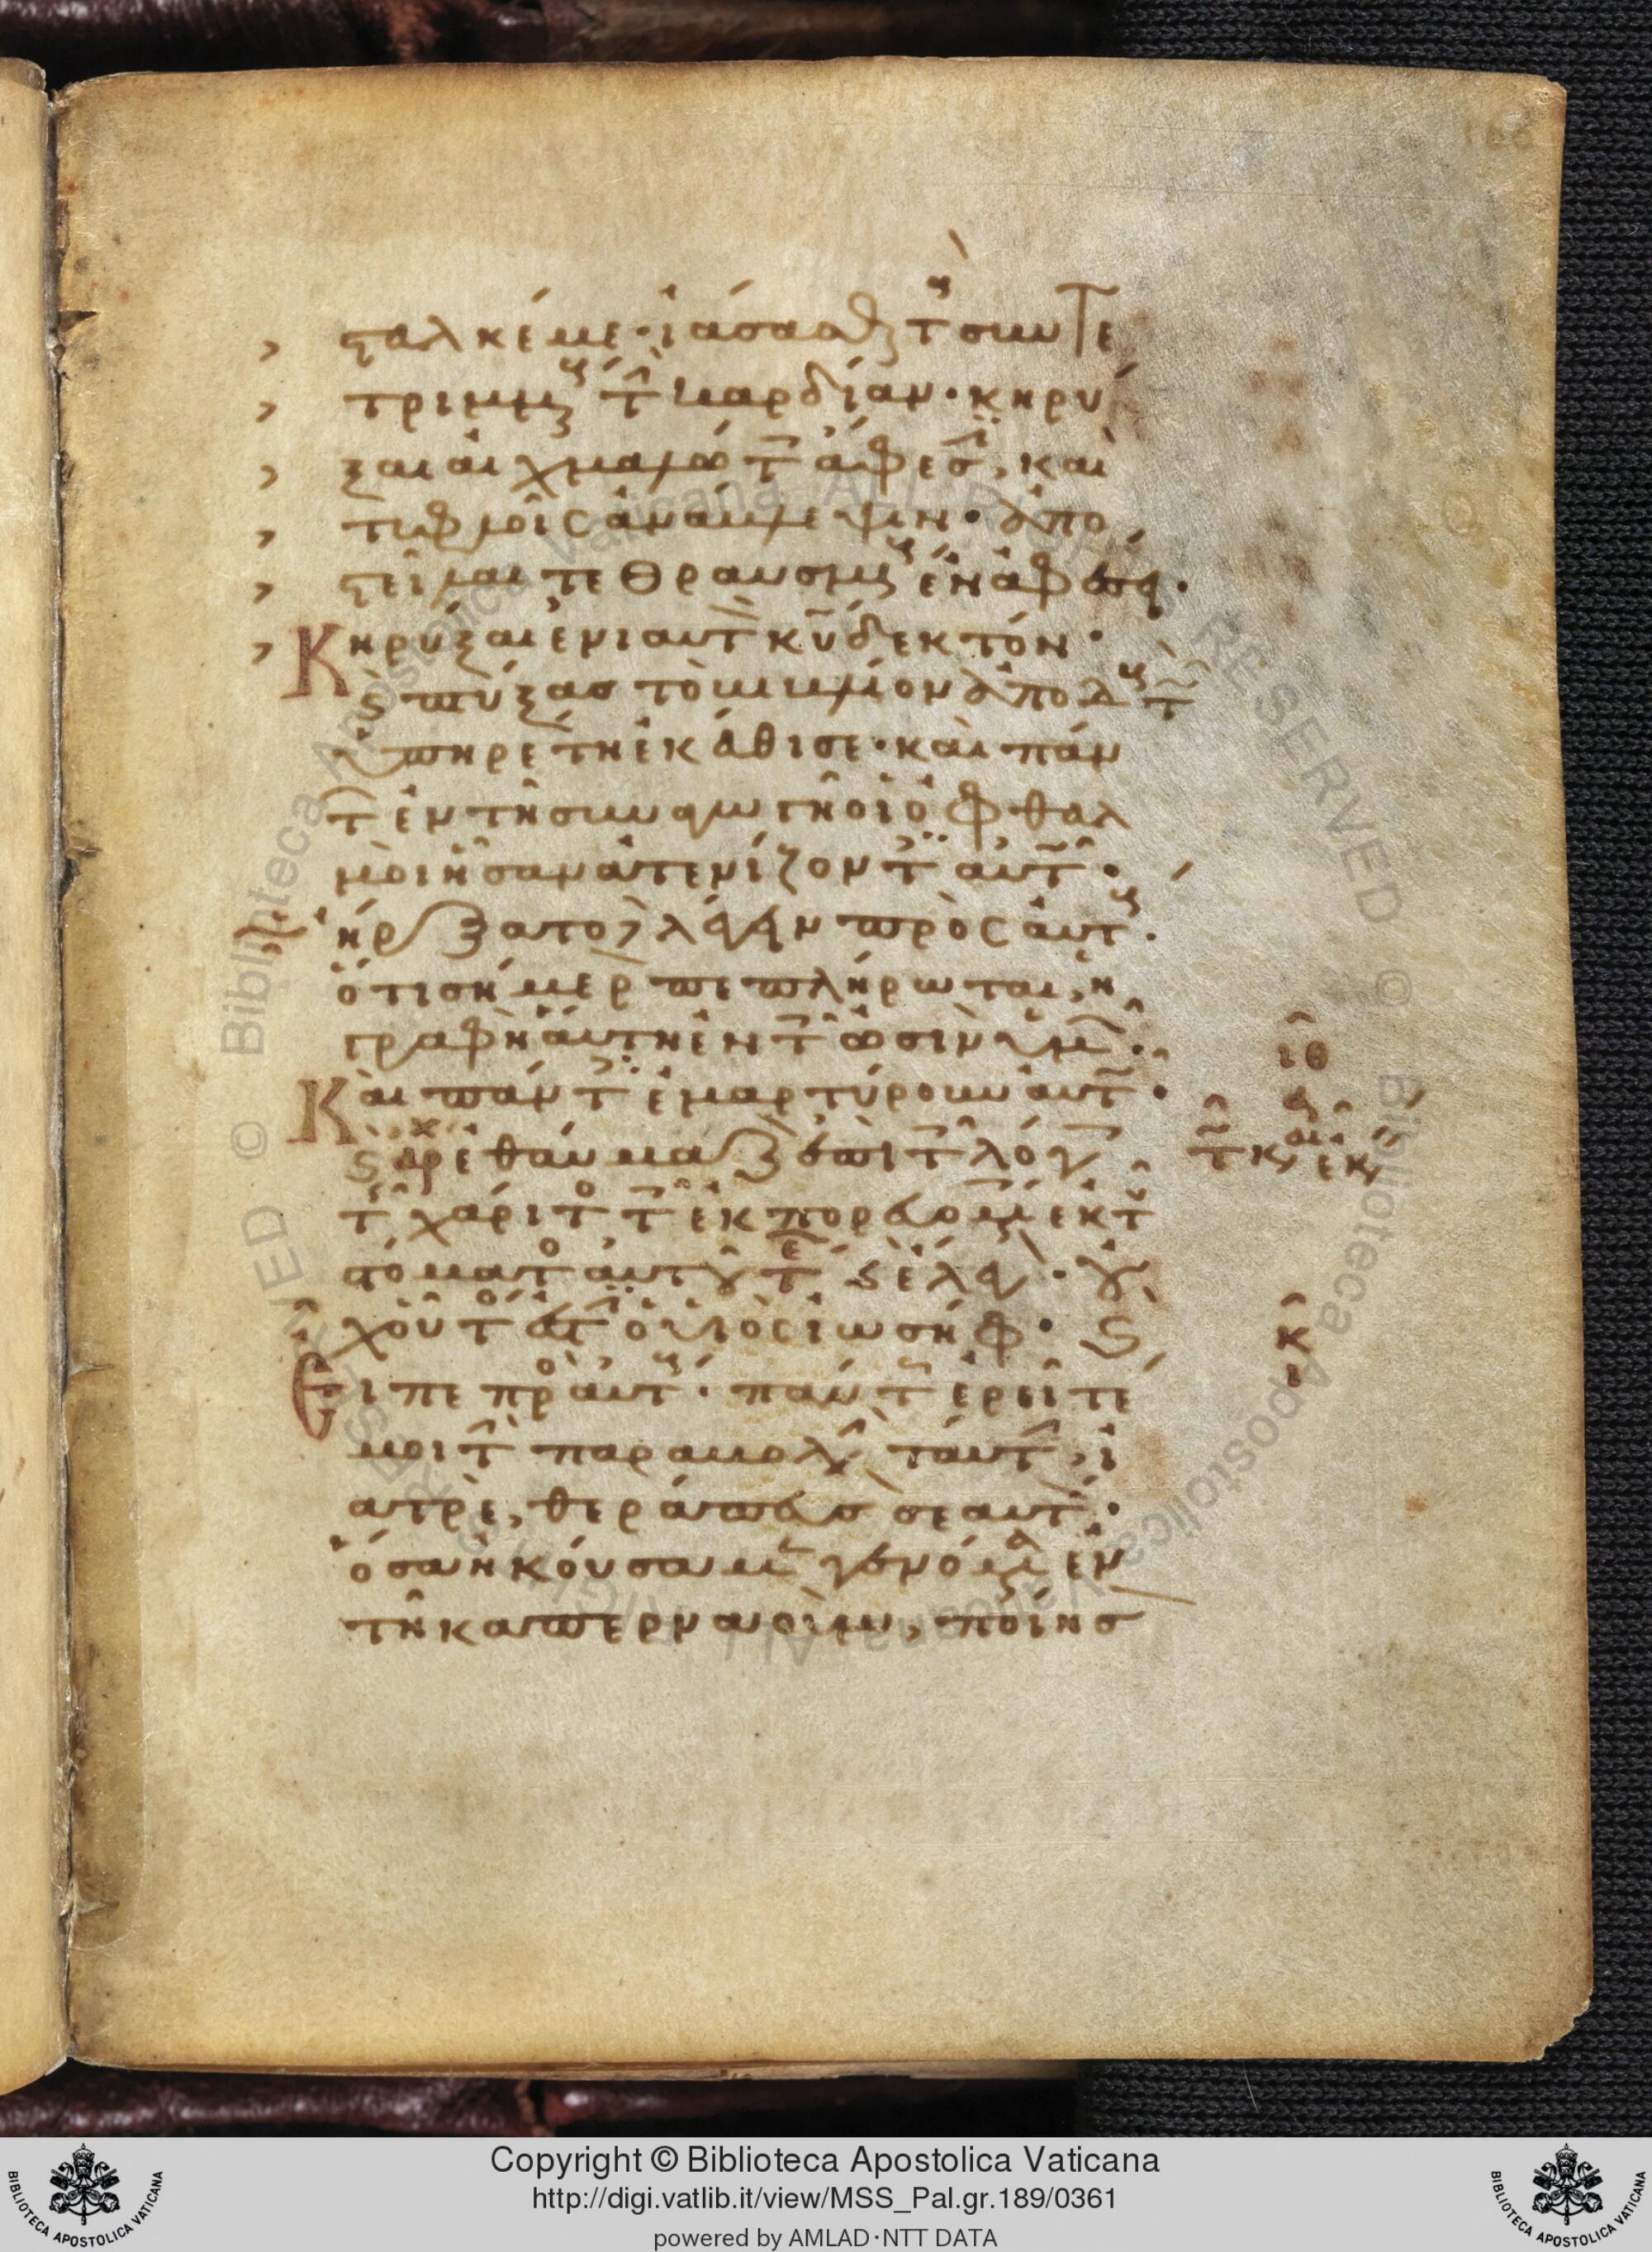 ϛαλκέ με· ἰάσασθαι τοὺς συντε
τριμμένους τὴν καρδίαν· κηρύ
ξαι αἰχμαλώτοις ἄφεσιν, καὶ
τυφλοῖς ἀνάβλεψιν· ἀπο
ϛεῖλαι τεθραυσμένους ἐν ἀφέσει·
Κηρύξαι ἐνιαυτὸν κυ δεκτόν·
καὶ πτύξας τὸ βιβλίον ἀποδοὺς τῷ
ὑπηρέτη ἐκάθισε· καὶ πάν
των ἐν τῆ συναγωγῆ οἱ ὀφθαλ
μοὶ ἦσαν ἀτενίζοντες αὐτῷ·
ἤρξατο δὲ λέγειν πρὸς αὐτοὺς·
ὅτι σήμερον πεπλήρωται, ἡ
γραφὴ αὕτη ἐν τοῖς ὠσὶν ὑμῶν·
Καὶ πάντες ἐμαρτύρουν αὐτῷ·
καὶ ἐθαύμαζον ἐπὶ τοῖς λόγοις
τῆς χάριτος τοῖς ἐκπορευομένοις ἐκ τοῦ
ϛόματος αὐτοῦ καὶ ἔλεγον· οὐ
χ οὗτός ἐστιν ὁ υἱὸς ἰωσήφ· καὶ
Εἶπε πρὸς αὐτούς· πάντως ἐρεῖτέ
μοι τὴν παραβολὴν ταύτην, ἰ
ατρὲ, θεράπευσον σεαυτὸν·
ὅσα ἠκούσαμεν γενόμενα ἐν
τῆ καπερναοὺμ, ποίησον
ιθ
κ
ι
Copyright © Biblioteca Apostolica Vaticana
http://digi.vatlib.it/view/MSS_Pal.gr.189/0361
powered by AMLAD·NTT DATA
BIBLIOTECA APOSTOLICA VATICANA
BIBLIOTECA APOSTOLICA VATICANA